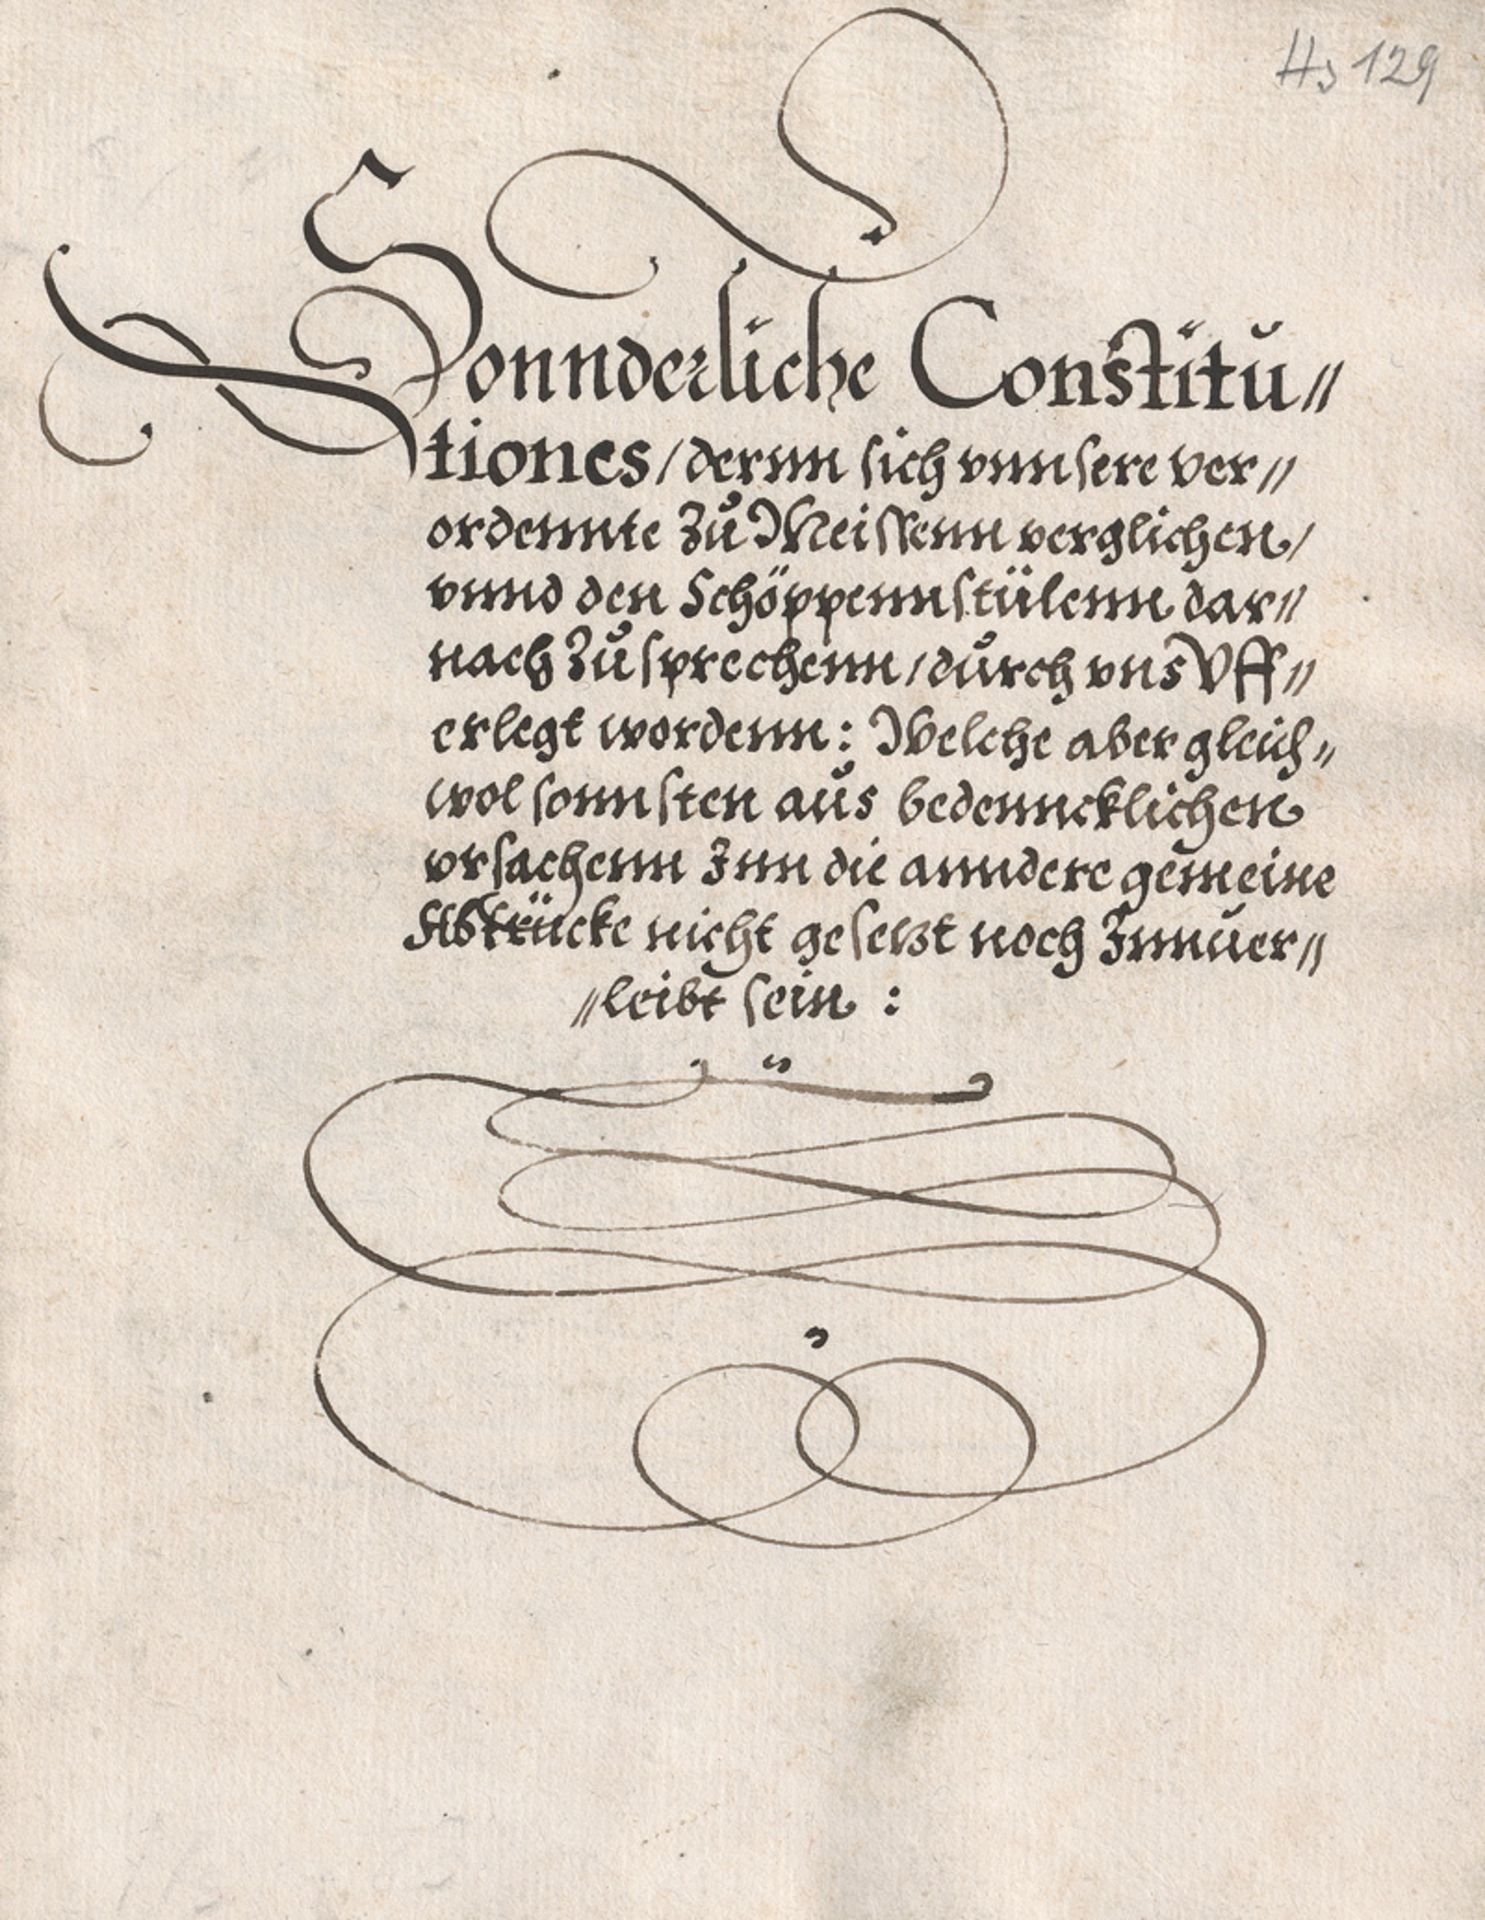 Hs 129
Sonnderliche Constitu⸗
tiones / dernn sich vnnsere ver⸗
ordennte Zů Meissenn verglichen /
vnnd den Schöppennstülenn dar⸗
nach Zů sprechenn / durch vns Vff⸗
erlegt wordenn : Welche aber gleich⸗
wol sonnsten aůs bedenncklichen
vrsachenn Inn die anndere gemeine
Abtrücke nicht gesetzt noch Innuer⸗
⸗leibt sein :